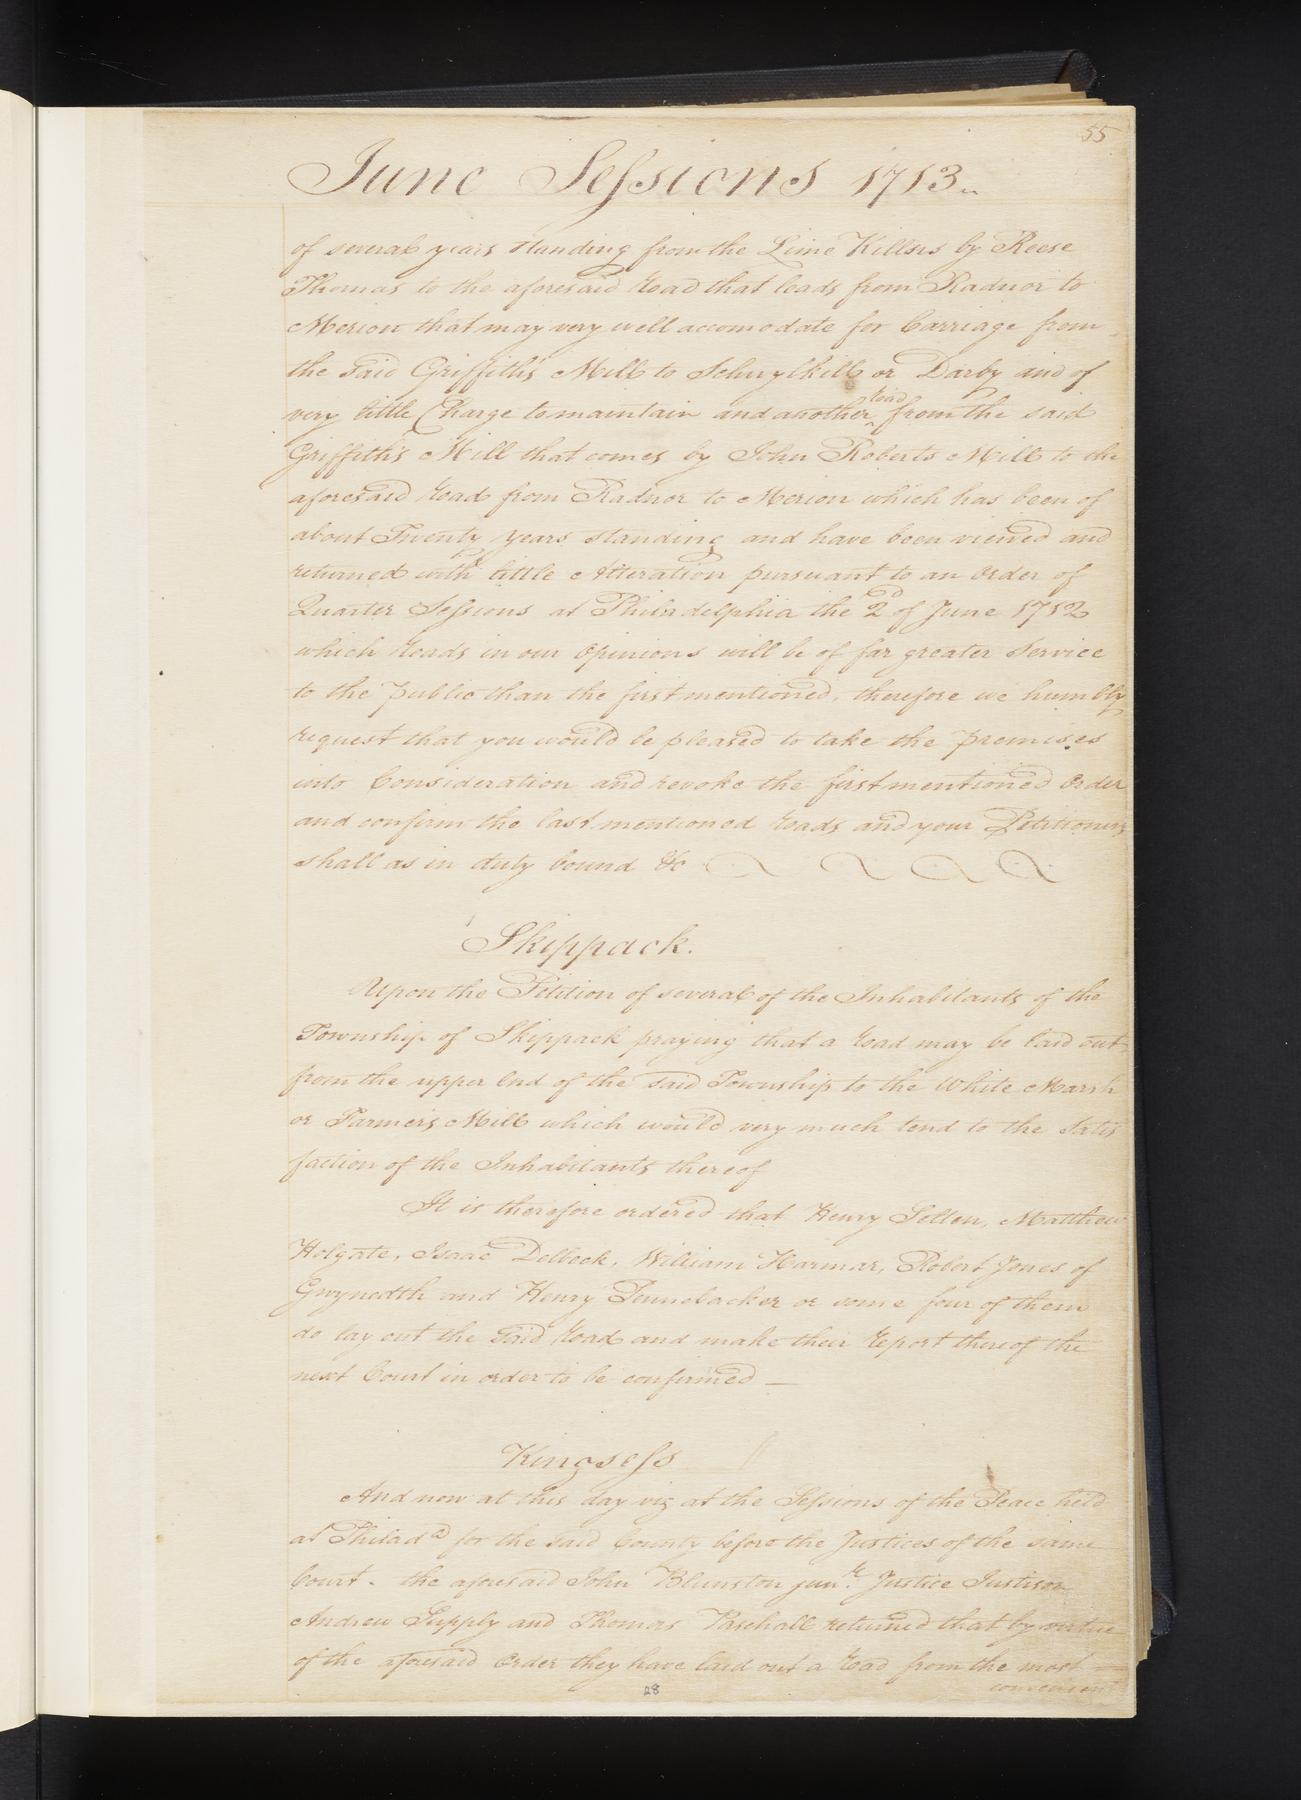 55
June Sessions 1713
of several years standing from the Lime Killns by Reese
Thomas to the aforesaid Road that leads from Radnor to
Merion that may very well accomodate for Carriage from
the said Griffith's Mill to Schuylkill or Darby and of
very little Charge to maintain and another road from the said
Griffith's Mill that comes by John Roberts Mill to the
aforesaid Road from Radnor to Merion which has been of
about Twenty years standing and have been viewed and
returned with little Alteration pursuant to an Order of
Quarter Sessions at Philadelphia the 2d of June 1712
which Roads in our Opinions will be of far greater Service
to the Public than the first mentioned, therefore we humbly
request that you would be pleased to take the premises
into Consideration and revoke the first mentioned Order
and confirm the last mentioned Roads and your Petitioners
shall as in duty bound &c
Skippack.
Upon the Petition of several of the Inhabitants of the
Township of Skippack praying that a Road may be laid out
from the upper End of the said Township to the White Marsh
or Farmer's Mill which would very much tend to the Satis
faction of the Inhabitants thereof
It is therefore ordered that Henry Sellen, Matthew
Holgate, Isaac Delbeck, William Harmar, Robert Jones of
Gwynedth and Henry Pennebacker or some four of them
do lay out the said Road and make their Report thereof the
next Court in order to be confirmed —
Kingsess
And now at this day viz at the Sessions of the Peace held
at Philada for the said County before the Justices of the same
Court. the aforesaid John Blunston junr. Justice Justison
Andrew Supply and Thomas Paschall returned that by virtue
of the aforesaid Order they have laid out a Road from the most
convenient
28